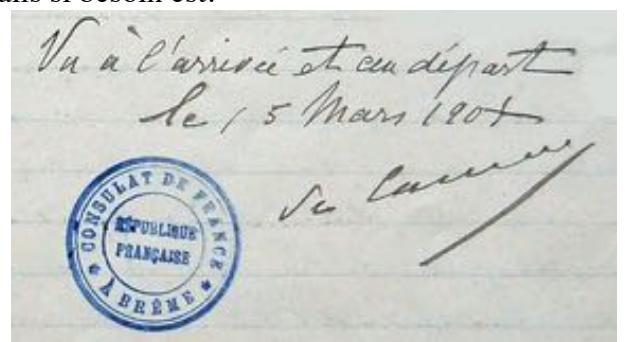 ans si besoin est.
Vu à l'arrivée et au départ
le 15 Mars
de
CONSULAT DE FRANCE
RÉPUBLIQUE
FRANÇAISE
À BRÊME